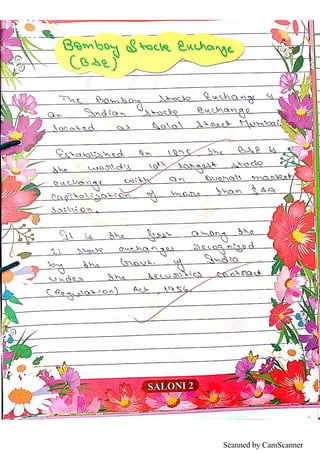 Bombay Stock Exchange
(BSE)
The Bombay Stock Exchange is
an Indian Stock Exchange
located at Dalal Street Mumbai
Established in the BSE is
the world's 10th largest stock
exchange with an overall market
capitalization of more than $
trillion.
It is the first among the
21 stock exchanges recognized
by the Govt. of India
under the securities contract
(Regulation) Act 1956.
SALONI 2
Scanned by CamScanner